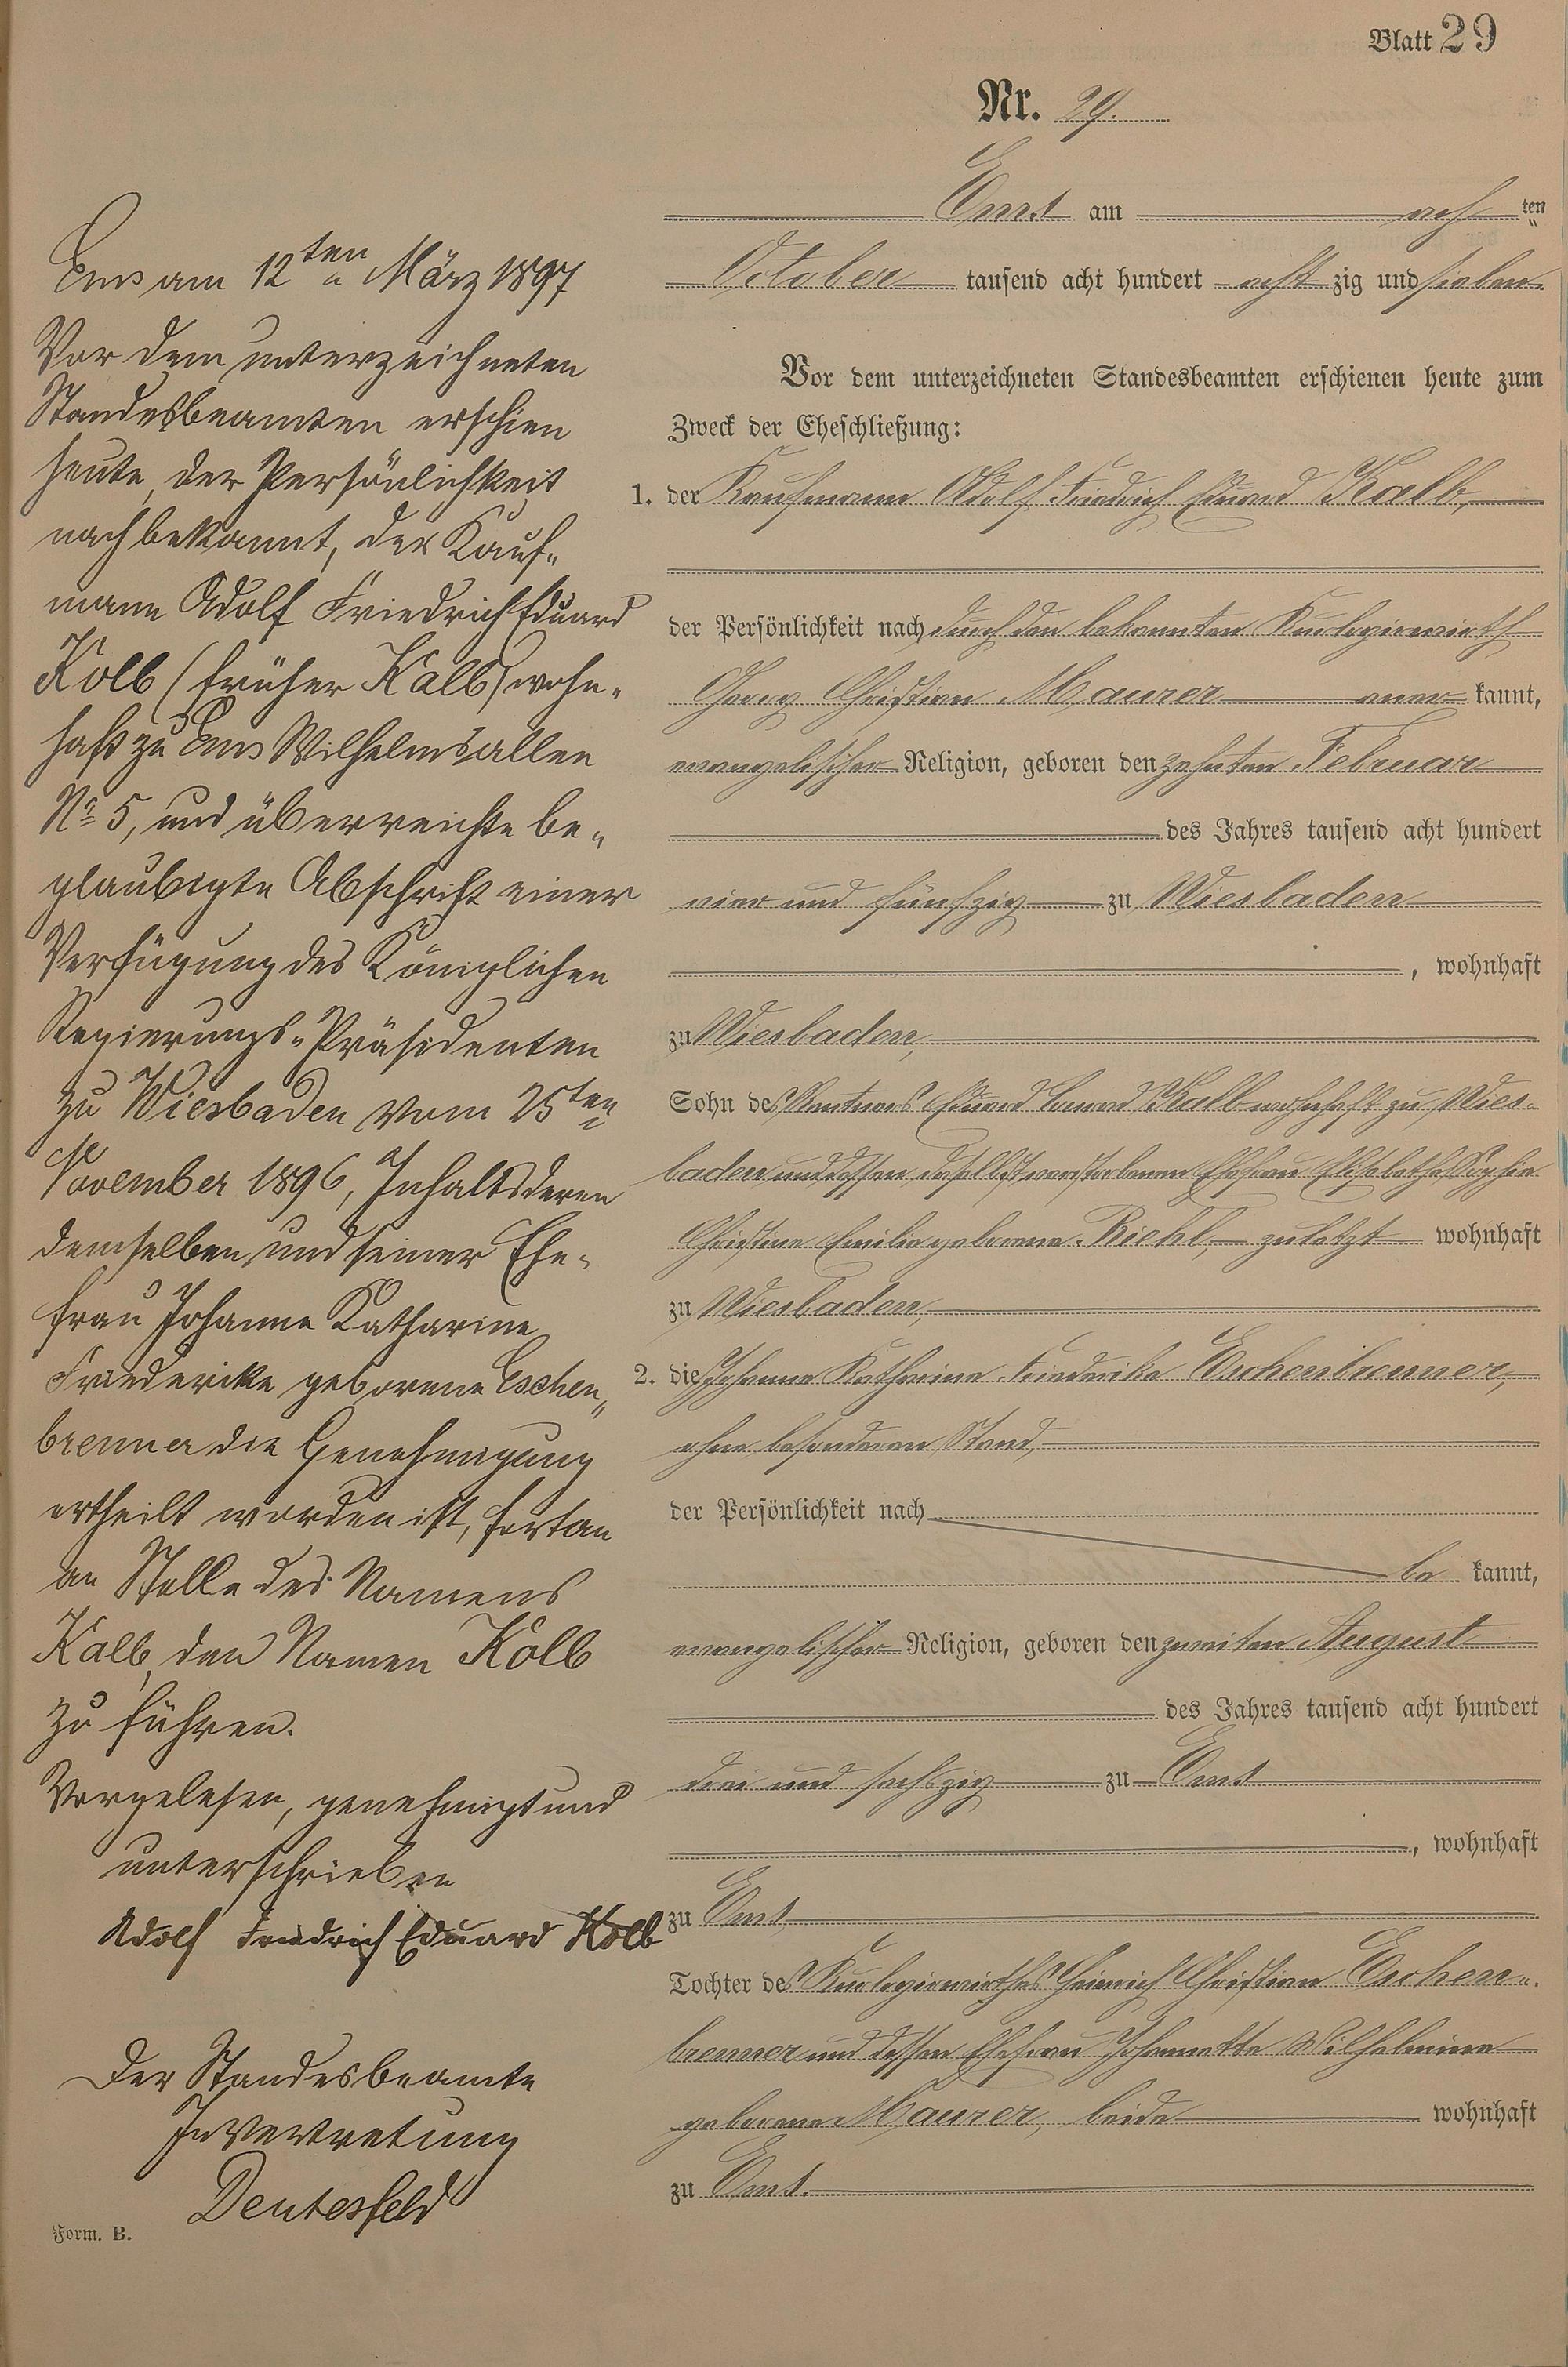 Blatt 29
Nr. 29.
Ems am acht ten
October tausend acht hundert acht zig und sieben.
Vor dem unterzeichneten Standesbeamten erschienen heute zum
Zweck der Eheschließung:
1. der Kaufmann Adolf Friedrich Eduard Kalb,
der Persönlichkeit nach durch den bekannten Kurlogirwirth
Georg Christian Maurer aner kannt,
evangelischer Religion, geboren den zehnten Februar
des Jahres tausend acht hundert
vier und fünfzig zu Wiesbaden
, wohnhaft
zu Wiesbaden,
Sohn des Rentners Eduard Kalb wohnhaft zu Wies-
baden und dessen daselbst verstorbenen Ehefrau Elisabetha Sophie
Christine Emilie geborene Riehl, zuletzt wohnhaft
zu Wiesbaden,
2. die Johanne Katharine Friederike Eschenbrenner,
ohne besonderen Stand,
der Persönlichkeit nach
be kannt,
evangelischer Religion, geboren den zweiten August
des Jahres tausend acht hundert
drei und sechszig zu Ems
, wohnhaft
zu Ems,
Tochter des Kurlogirwirthes Heinrich Christian Eschen-
brenner und dessen Ehefrau Johannette Wilhelmine
geborene Maurer, beide wohnhaft
zu Ems.
Ems am 12ten März 1897
Vor dem unterzeichneten
Standesbeamten erschien
heute, der Persönlichkeit
nach bekannt, der Kauf-
mann Adolf Friedrich Eduard
Kolb (früher Kalb) wohn-
haft zu Ems Wilhelmsallee
No 5, und überreichte be-
glaubigte Abschrift einer
Verfügung des Königlichen
Regierungs-Präsidenten
zu Wiesbaden vom 25ten
November 1896, Inhalts deren
demselben und seiner Ehe-
frau Johanne Katharine
Friederike geborene Eschen-
brenner die Genehmigung
ertheilt worden ist, fortan
an Stelle des Namens
Kalb, den Namen Kolb
zu führen.
Vorgelesen, genehmigt und
unterschrieben
Adolf Friedrich Eduard Kolb
Der Standesbeamte
In Vertretung
Deutesfeld
Form. B.